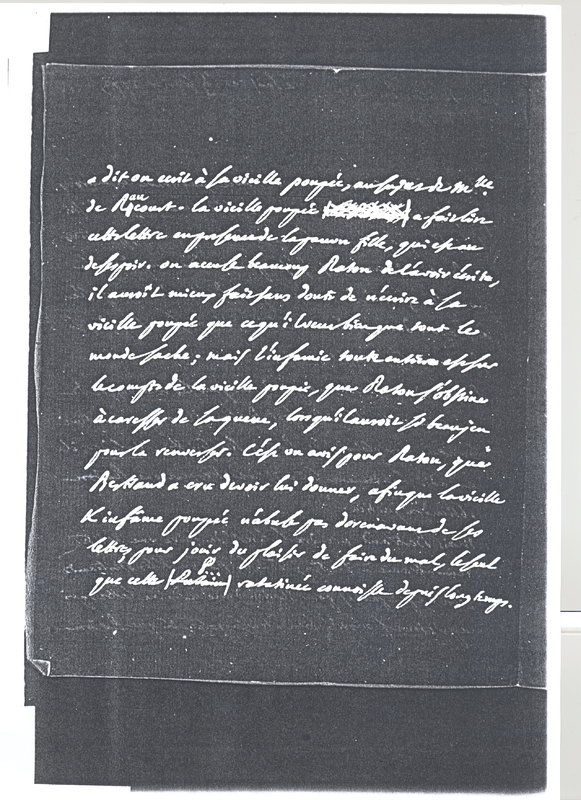 a dit on ecrit à sa vieille poupée, au sujet de M.lle
de Raucourt. la vieille poupée a fait lire
cette lettre en presence de la pauvre fille, qui est au
desespoir. on accuse beaucoup Raton de l'avoir écrite,
il auroit mieux fait sans doute de n'écrire à sa
vieille poupée que ce qu'il veut bien que tout le
monde sache; mais l'infamie toute entiere est sur
le compte de la vieille poupée, que Raton s'obstine
à caresser de sa queue, lorsqu'il auroit si beau jeu
pour la renverser. C'est un avis pour Raton, que
Bertrand a cru devoir lui donner, afin que la vieille
& infâme poupée n'abuse pas dorenavant de ses
lettres pour jouir du plaisir de faire du mal, le seul
que cette ratatinée connoisse depuis long temps.